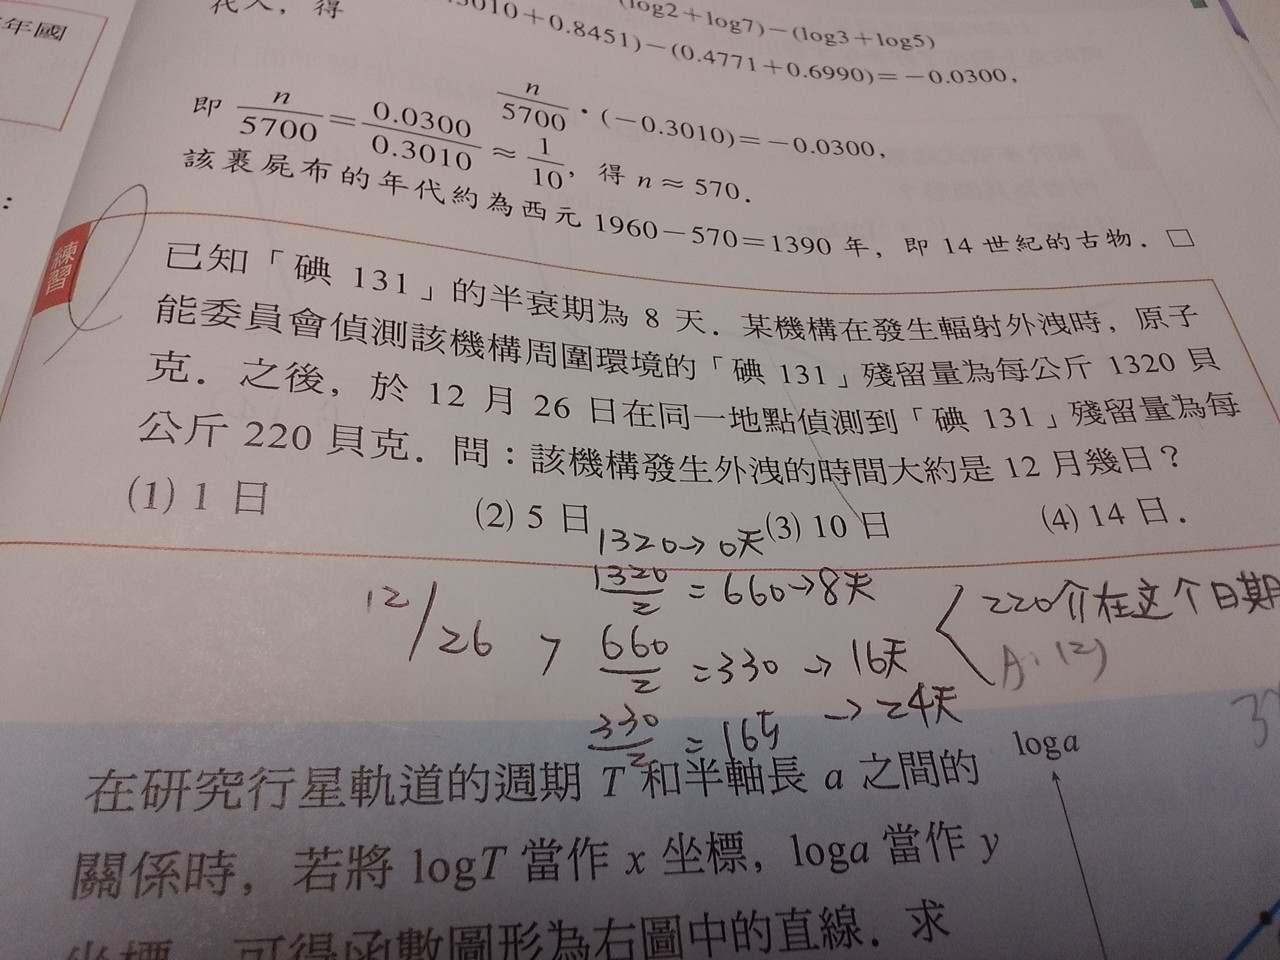 年國
代入，得
(log2+log7)−(log3+log5)
3010+0.8451)−(0.4771+0.6990)=−0.0300，
n/5700 · (−0.3010)=−0.0300，
即 n/5700 = 0.0300/0.3010 ≈ 1/10，得 n≈570．
該裹屍布的年代約為西元 1960−570=1390 年，即 14 世紀的古物．□
練習
已知「碘 131」的半衰期為 8 天．某機構在發生輻射外洩時，原子
能委員會偵測該機構周圍環境的「碘 131」殘留量為每公斤 1320 貝
克．之後，於 12 月 26 日在同一地點偵測到「碘 131」殘留量為每
公斤 220 貝克．問：該機構發生外洩的時間大約是 12 月幾日？
(1) 1 日 (2) 5 日 (3) 10 日 (4) 14 日．
1320→0天
1320/2 = 660→8天
12/26 > 660/2 = 330 → 16天
330/2 = 165 → 24天
220介在这个日期
A：(2)
loga
在研究行星軌道的週期 T 和半軸長 a 之間的
關係時，若將 logT 當作 x 坐標，loga 當作 y
坐標，可得函數圖形為右圖中的直線．求